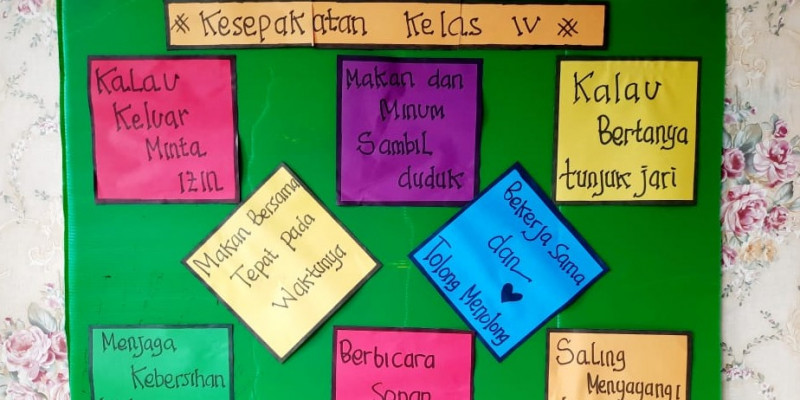 * Kesepakatan Kelas IV *
Kalau
Keluar
Minta
izin
Makan dan
Minum
Sambil
duduk
Kalau
Bertanya
tunjuk jari
Makan Bersama
Tepat pada
Waktunya
Bekerja Sama
dan
Tolong Menolong
Menjaga
Kebersihan
Berbicara
Sopan
Saling
Menyayangi